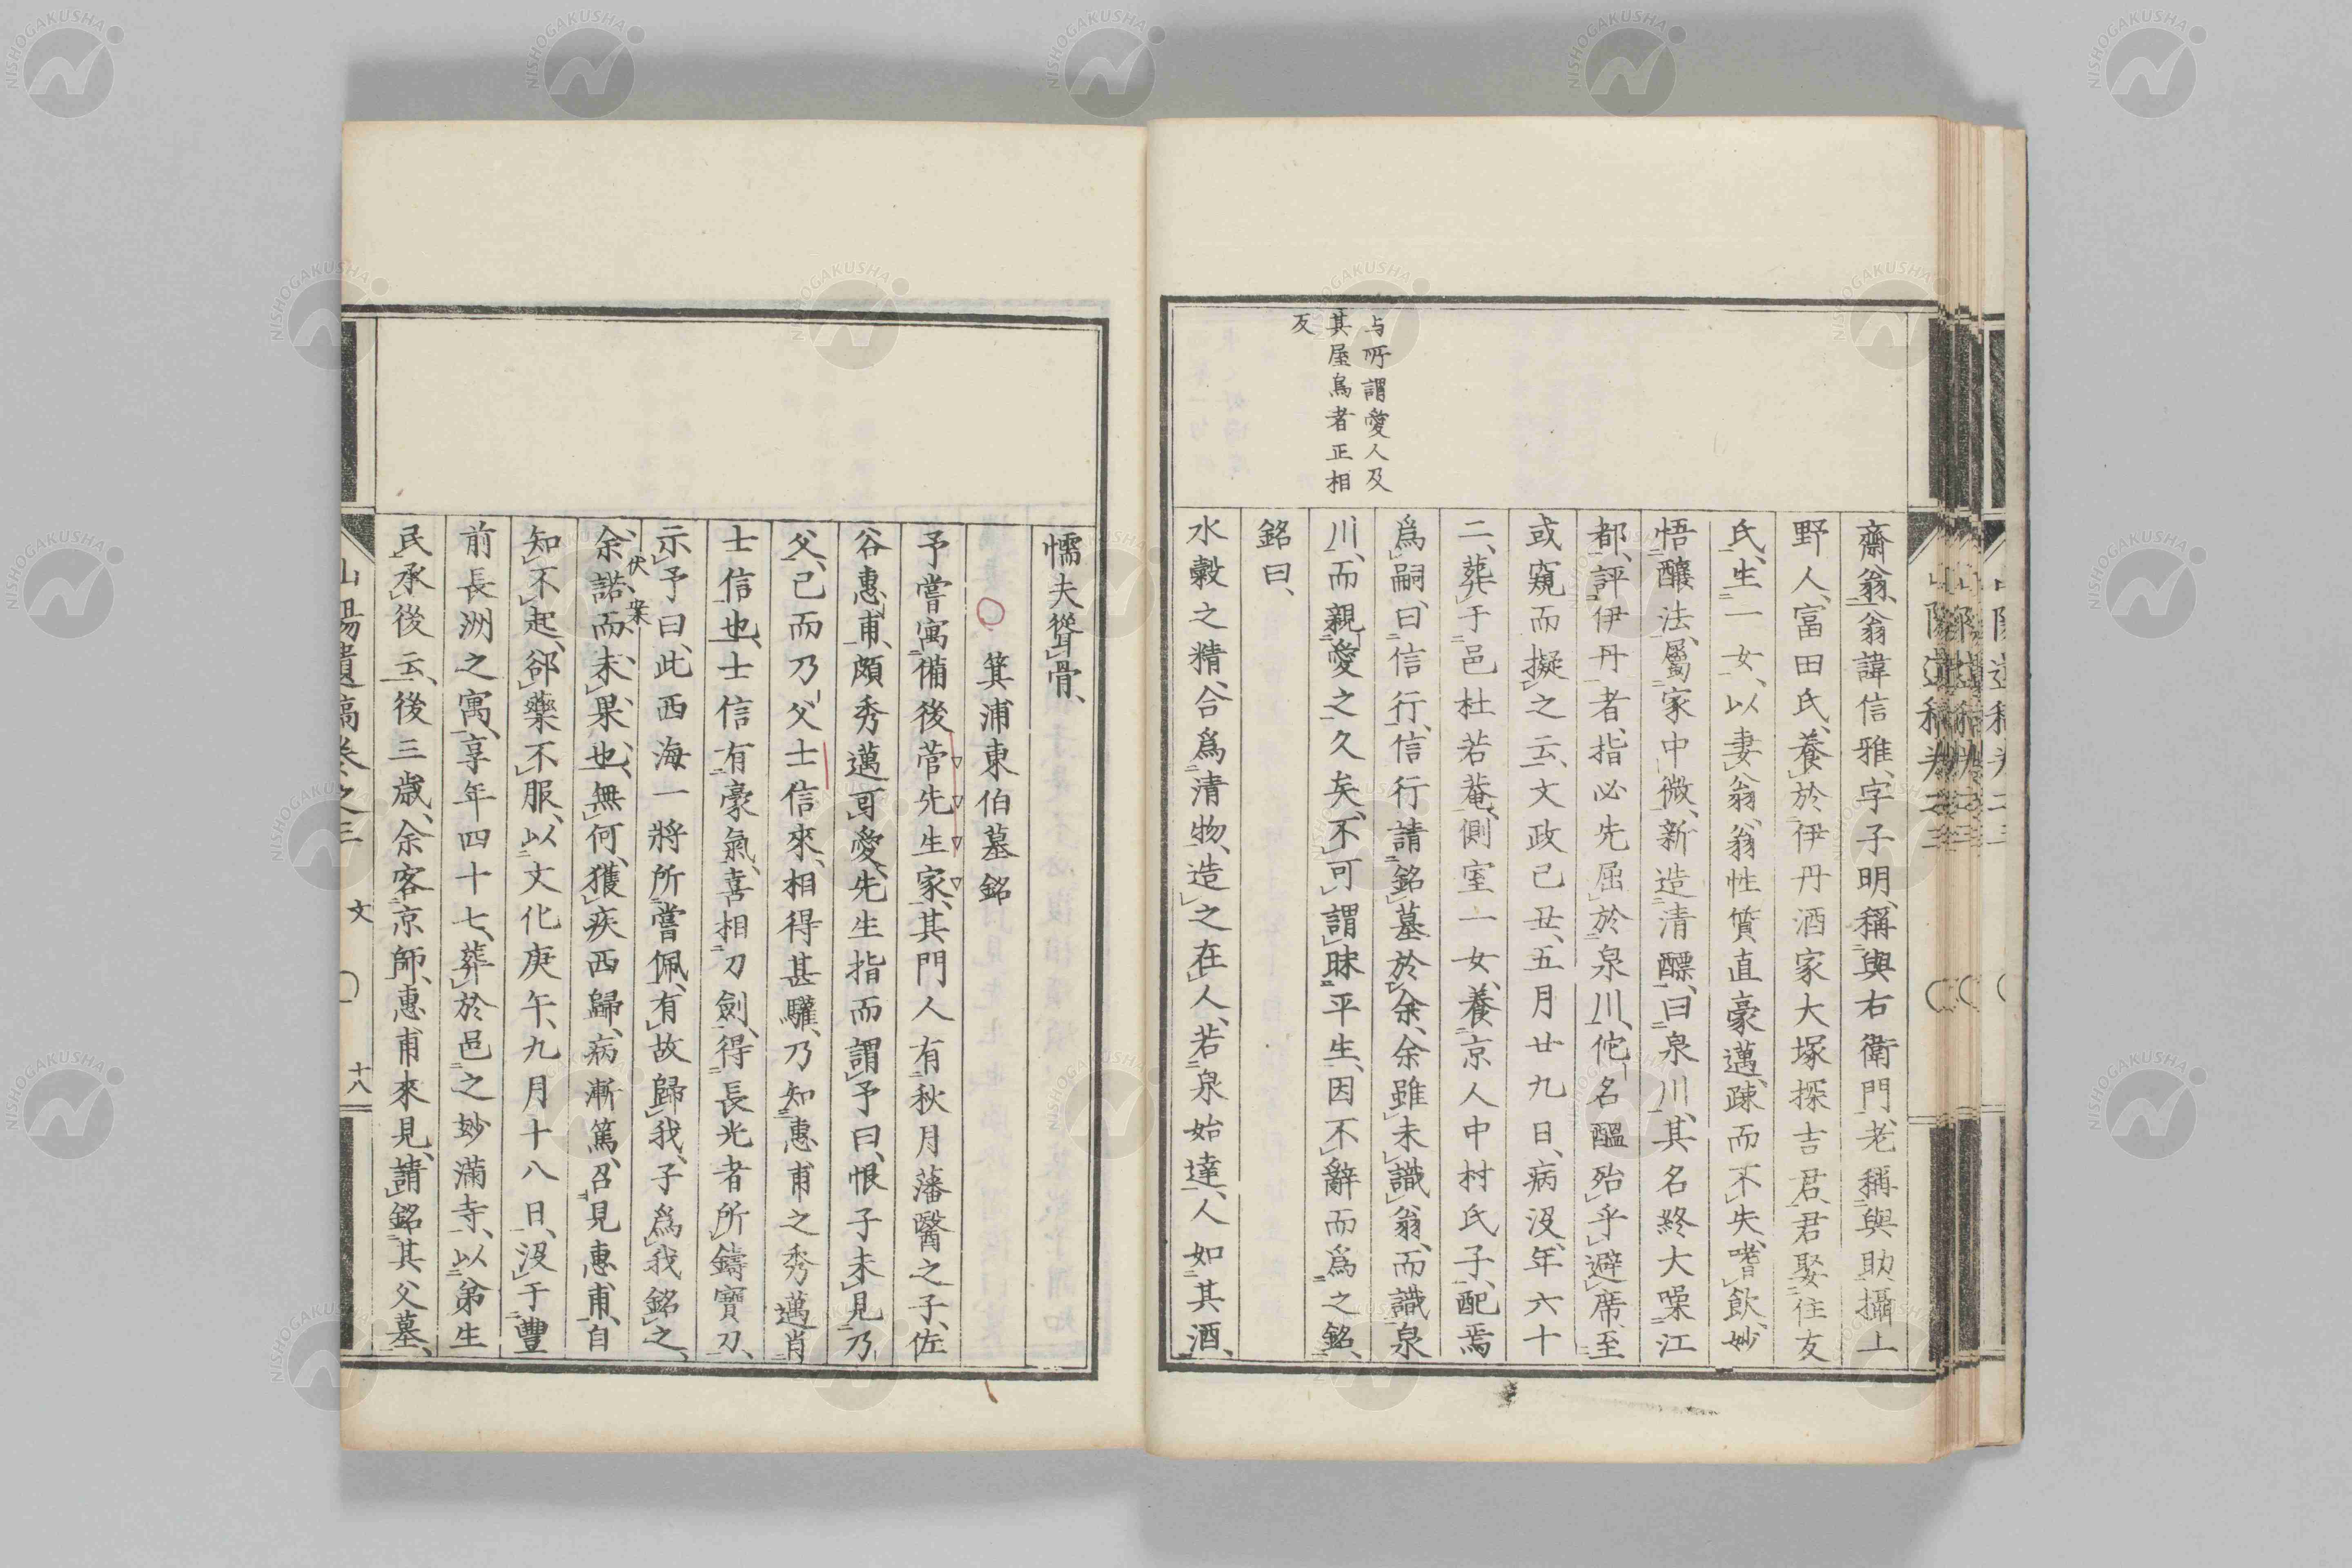 齋翁、翁諱信雅、字子明、稱與右衛門、老稱與助、攝上
野人、富田氏、養於伊丹酒家大塚探吉君、君娶住友
氏、生一女、以妻翁、翁性質直豪邁、疎而不失、嗜飲、妙
悟釀法、屬家中微、新造清醥、曰泉川、其名終大噪江
都、評伊丹者、指必先屈於泉川、佗名醞殆乎避席、至
或窺而擬之云、文政己丑、五月廿九日、病沒、年六十
二、葬于邑杜若菴、側室一女、養京人中村氏子、配焉
為嗣、曰信行、信行請銘墓於余、余雖未識翁、而識泉
川、而親愛之久矣、不可謂昧平生、因不辭而為之銘、
銘曰、
水穀之精、合為清物、造之在人、若泉始達、人如其酒、
与所謂愛人及
其屋烏者正相
反
懦夫聳骨、
箕浦東伯墓銘
予嘗寓備後菅先生家、其門人有秋月藩醫之子、佐
谷惠甫、頗秀邁可愛、先生指而謂予曰、恨子未見乃
父、已而乃父士信來、相得甚驩、乃知惠甫之秀邁肖
士信也、士信有豪氣、喜相刀劍、得長光者所鑄寶刀、
示予曰、此西海一將所嘗佩、有故歸我、子為我銘之、
余諾而未果也、無何、獲疾西歸、病漸篤、召見惠甫、自
伏案
知不起、郤藥不服、以文化庚午、九月十八日、沒于豐
前長洲之寓、享年四十七、葬於邑之玅滿寺、以弟生
民承後云、後三歲、余客京師、惠甫來見、請銘其父墓、
山陽遺稿卷之三 文 十八